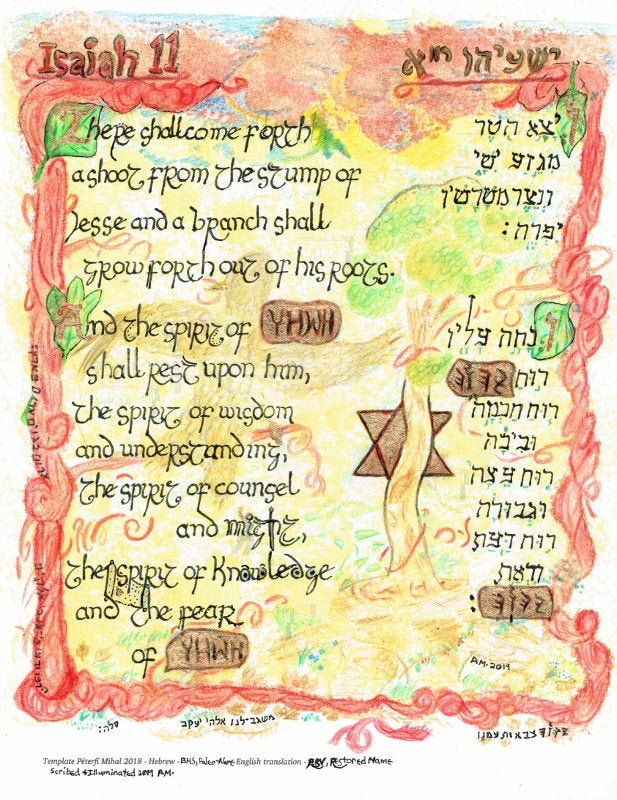 Isaiah 11
There shall come forth
a shoot from the stump of
Jesse and a branch shall
grow forth out of his roots.
And the spirit of YHWH
shall rest upon him,
the spirit of wisdom
and understanding,
the spirit of counsel
and might,
the spirit of Knowledge
and the fear
of YHWH
ישעיהו י״א
ויצא חטר
מגזע ישי
ונצר משרשיו
יפרה:
ונחה עליו
רוח 𐤉𐤄𐤅𐤄
רוח חכמה
ובינה
רוח עצה
וגבורה
רוח דעת
ויראת
𐤉𐤄𐤅𐤄:
A.M. 2019
𐤉𐤄𐤅𐤄 צבאות עמנו
משגב-לנו אלהי יעקב
סלה:
Template Péterfi Mihal 2018 - Hebrew - BHS, Paleo-Name English translation - RSV, Restored Name
Scribed & Illuminated 2019 A.M.